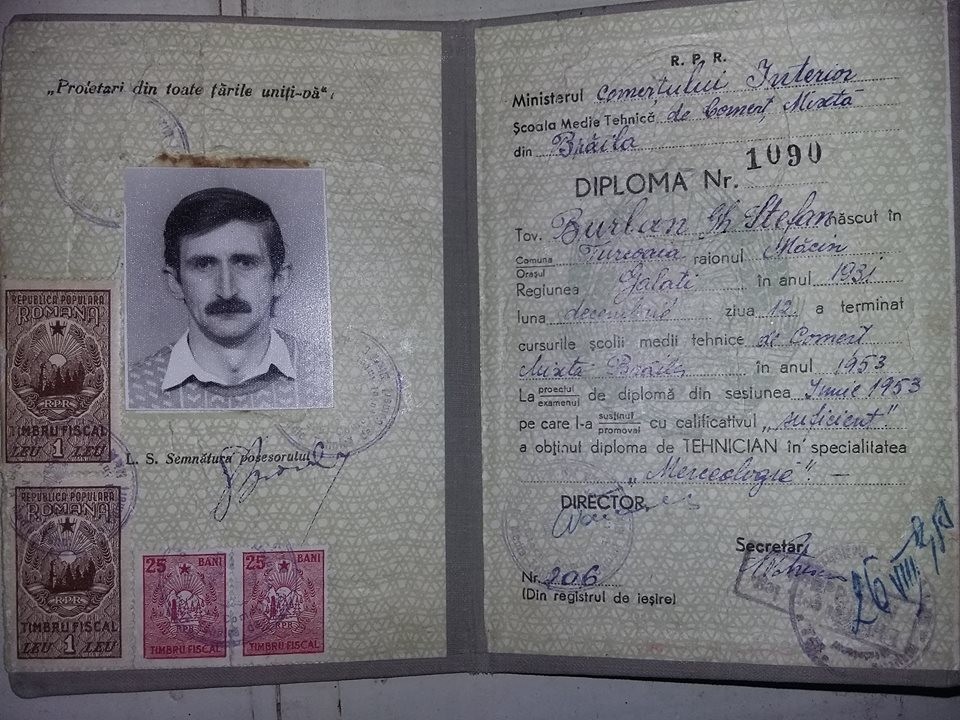 „Proletari din toate țările uniți-vă“,
REPUBLICA POPULARA
ROMANA
RPR
TIMBRU FISCAL
LEU 1 LEU
L. S. Semnătura posesorului
REPUBLICA POPULARA
ROMANA
RPR
TIMBRU FISCAL
LEU 1 LEU
25 BANI
RPR
TIMBRU FISCAL
25 BANI
RPR
TIMBRU FISCAL
R. P. R.
Ministerul Comerțului Interior
Școala Medie Tehnică de Comerț Mixtă
din Brăila
DIPLOMA Nr. 1090
Tov. Burlan Gh Stefan născut în
Comuna
Orașul
Turcoaia raionul Măcin
Regiunea Galati în anul 1931
luna decembrie ziua 12 a terminat
cursurile școlii medii tehnice de Comert
Mixtă Brăila în anul 1953
La proiectul
examenul
de diplomă din sesiunea Iunie 1953
pe care l-a susținut
promovat
cu calificativul „suficient"
a obținut diploma de TEHNICIAN în specialitatea
„Merceologie". —
DIRECTOR,
Secretar,
Nr. 206
(Din registrul de ieșire)
26 VIII